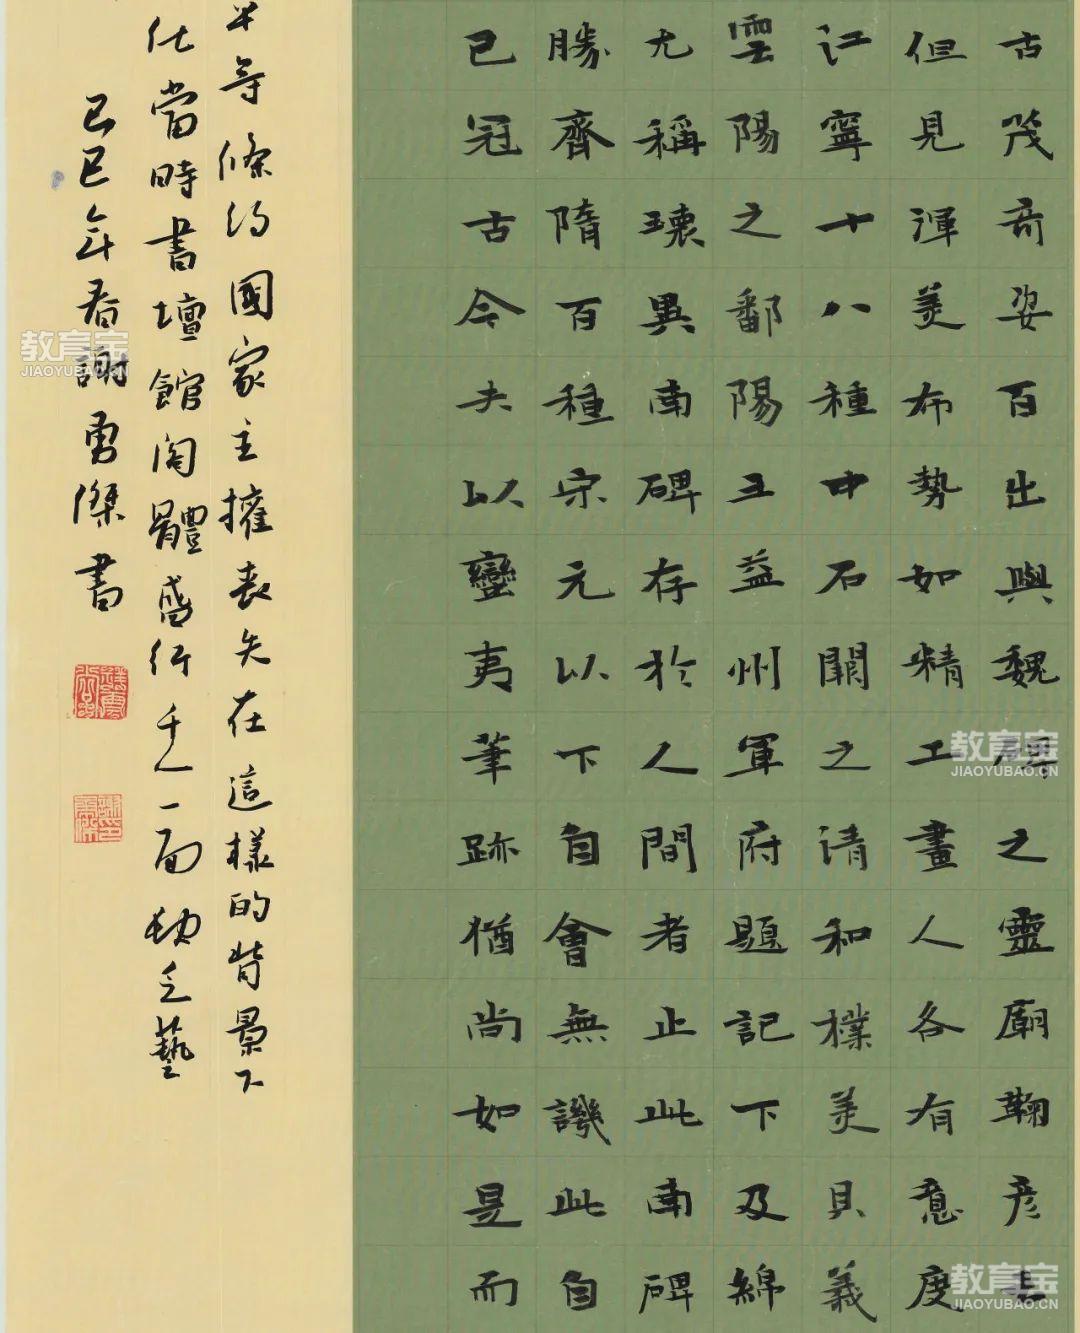 古茂奇姿百出與魏碑之靈廟鞠彥云
但見渾美布勢如精工畫人各有意度
江寧十八種中石闕之清和樸美貝義
雲陽之鄱陽王益州軍府題記下及綿
尤稱瓌異南碑存於人間者止此南碑
勝齊隋百種宋元以下自會無譏此自
已冠古今夫以蠻夷筆跡猶尚如是而
半等條約國家主權喪失在這樣的背景下
化當時書壇館閣體盛行千人一面缺乏藝
己巳年春謝勇傑書
教育宝
JIAOYUBAO.CN
教育宝
JIAOYUBAO.CN
教育宝
JIAOYUBAO.CN